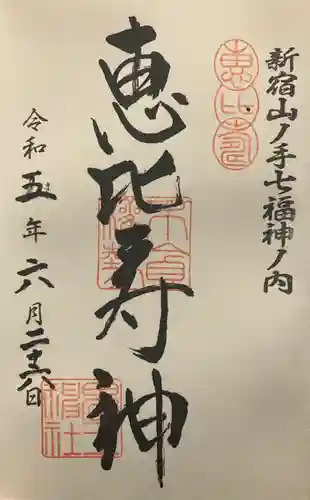 新宿山ノ手七福神ノ内
恵比寿
恵比寿神
令和五年六月二十八日